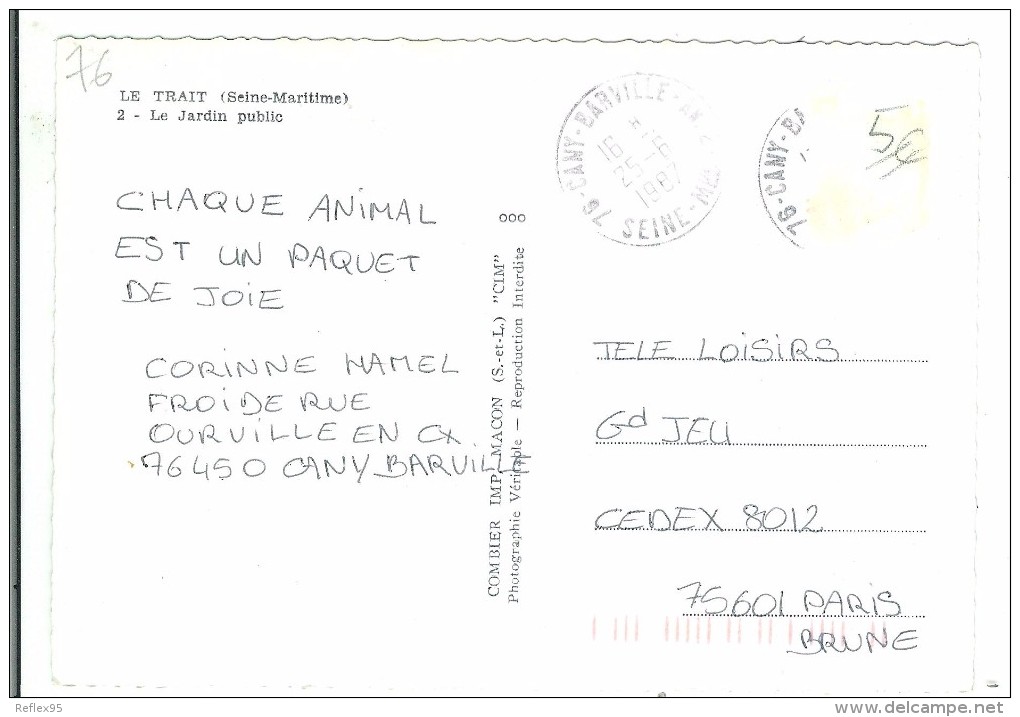 76
LE TRAIT (Seine-Maritime)
2 - Le Jardin public
CHAQUE ANIMAL
EST UN PAQUET
DE JOIE
CORINNE HAMEL
FROIDE RUE
OURVILLE EN CX.
76450 CANY BARVILLE
ooo
COMBIER IMP. MACON (S.-et-L.) "CIM"
Photographie Véritable — Reproduction Interdite
76-CANY-BARVILLE-
16
25-6
1987
SEINE-
76-CANY-BA
5€
TELE LOISIRS
Gd JEU
CEDEX 8012
75601 PARIS
BRUNE
Reflex95
www.delcampe.net